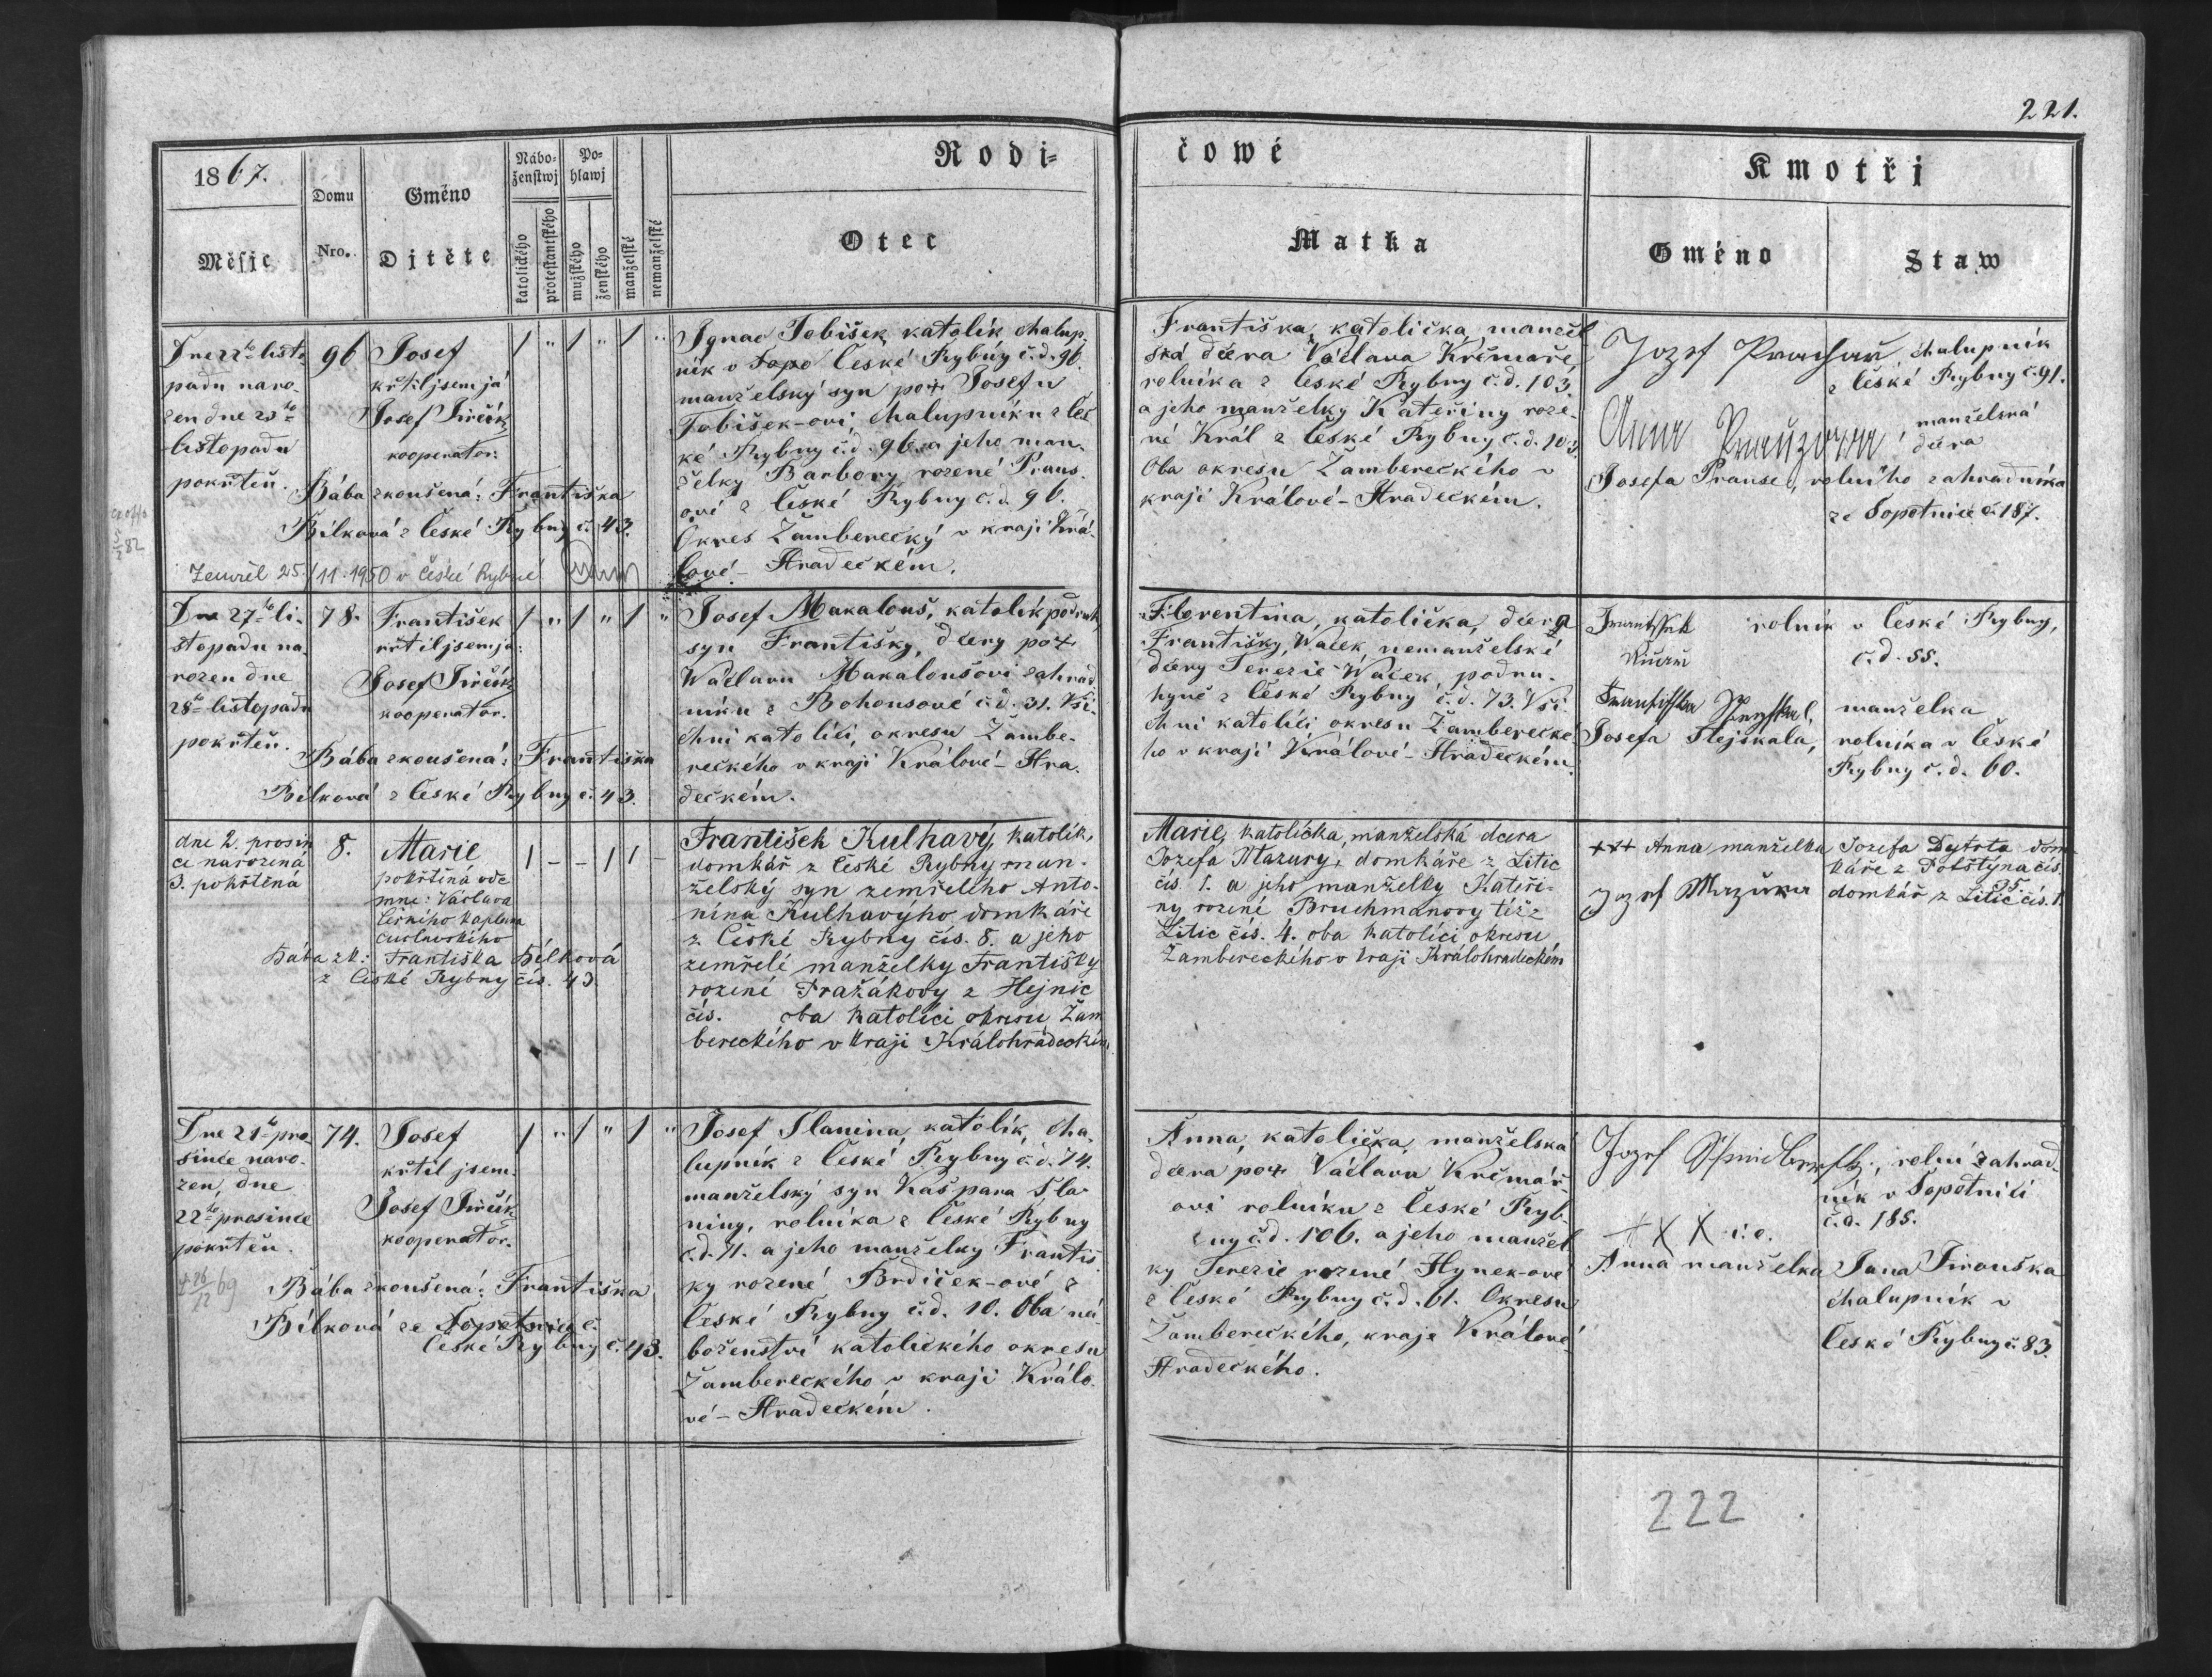 221.
1867.
Měsjc
Domu
Nro.
Gméno
Djtěte
Nábo-
ženstwj
katolického
protestantského
Po-
hlawj
mužského
ženského
manželské
nemanželské
Rodi-
čowé
Otec
Matka
Kmotřj
Gméno
Staw
Dne 22ho listo
padu naro-
zen dne 23ho
listopadu
pokřtěn.
96
Josef
křtil jsem já
Josef Jireček
kooperator:
Bába zkoušená: Františka
Bílková z České Rybny č. 43.
Zemřel 25./11.1950 v České Rybné
1 " 1 " 1 "
Ignac Tobišek, katolík chalup-
ník v České Rybny č.d. 96.
manželský syn po+ Josefu
Tobišek-ovi, chalupníku z Čes
ké Rybny č.d. 96. a jeho man-
želky Barbory rozené Praus-
ové z České Rybny č.d. 96.
Okres Žamberecký v kraji Krá-
lové-Hradeckém.
Františka, katolička, manžel
ská dcera Václava Krčmaře
rolníka z České Rybny č.d. 103.
a jeho manželky Kateřiny roze-
né Král z České Rybny č.d. 103.
Oba okresu Žambereckého v
kraji Králové-Hradeckém.
Jozef Prachař, chalupník
z České Rybny č. 91.
Anna Prauzowa, manželská
dcera
Josefa Prause, rolního zahradníka
ze Sopotnice č. 187.
Dne 27ho li-
stopadu na-
rozen dne
28ho listopadu
pokřtěn.
78.
František
křtil jsem já:
Josef Jireček
kooperator.
Bába zkoušená: Františka
Bílková z České Rybny č. 43.
1 " 1 " 1 "
Josef Makalouš, katolík podruh,
syn Františky, dcery po+
Wáclavu Makaloušovi zahrad
níku z Bohousové č.d. 31. Vši-
chni katolíci, okresu Žambe-
reckého v kraji Králové-Hra-
deckém.
Florentina, katolička, dcera
Františky, Wacek, nemanželské
dcery Terezie Wacek, podru-
hyně z České Rybny č.d. 73. Vši-
chni katolíci okresu Žamberecké
ho v kraji Králové-Hradeckém.
rolník v České Rybny,
č.d. 55.
manželka
Josefa Stejskala, rolníka v České
Rybny č.d. 60.
dne 2. prosin
ce narozena
3. pokřtěná
8.
Marie
pokřtěná ode
mne: Václava
kaplana
Bába zk: Františka Bílková
z České Rybny čís. 43.
1 - - 1 1 -
František Kulhavý, katolík,
domkář z České Rybny man-
želský syn zemřelého Anto-
nína Kulhavýho domkáře
z České Rybny čís. 8. a jeho
zemřelé manželky Františky
rozené Pražákovy z Hejnic
čís. oba katolíci okresu Žam
bereckého v kraji Králohradeckém
Marie, katolička, manželská dcera
Jozefa Mazury, domkáře z Litic
čís. 1. a jeho manželky Kateři-
ny rozené Bruchmanovy též z
Litic čís. 4. oba katolíci okresu
Žambereckého v kraji Králohradeckém
+++ Anna manželka Jozefa Dytrta dom
káře z Potštýna čís.
35.
Jozef Mazura domkář z Litic čís. 1.
Dne 21ho pro-
since naro-
zen, dne
22ho prosince
pokřtěn.
74.
Josef
křtil jsem:
Josef Jireček
kooperator.
Bába zkoušená: Františka
Bílková ze Sopotnice č.
České Rybny č. 43.
1 " 1 " 1 "
Josef Slanina, katolík, cha-
lupník z České Rybny č.d. 74.
manželský syn Kašpara Sla-
niny, rolníka z České Rybny
č.d. 71. a jeho manželky Františ
ky rozené Brdiček-ové z
České Rybny č.d. 10. Oba ná-
boženství katolického okresu
Žambereckého v kraji Králo-
vé-Hradeckém.
Anna, katolička, manželská
dcera po+ Václavu Krčmář-
ovi rolníku z České Ryb-
ny č.d. 106. a jeho manžel
ky Terezie rozené Hynek-ové
z České Rybny č.d. 61. Okresu
Žambereckého, kraje Králové
Hradeckého.
Jozef rolní zahrad-
ník v Sopotnici
č.d. 185.
+ X X
Anna manželka Jana Jirouška
chalupník v
České Rybny č. 83.
222